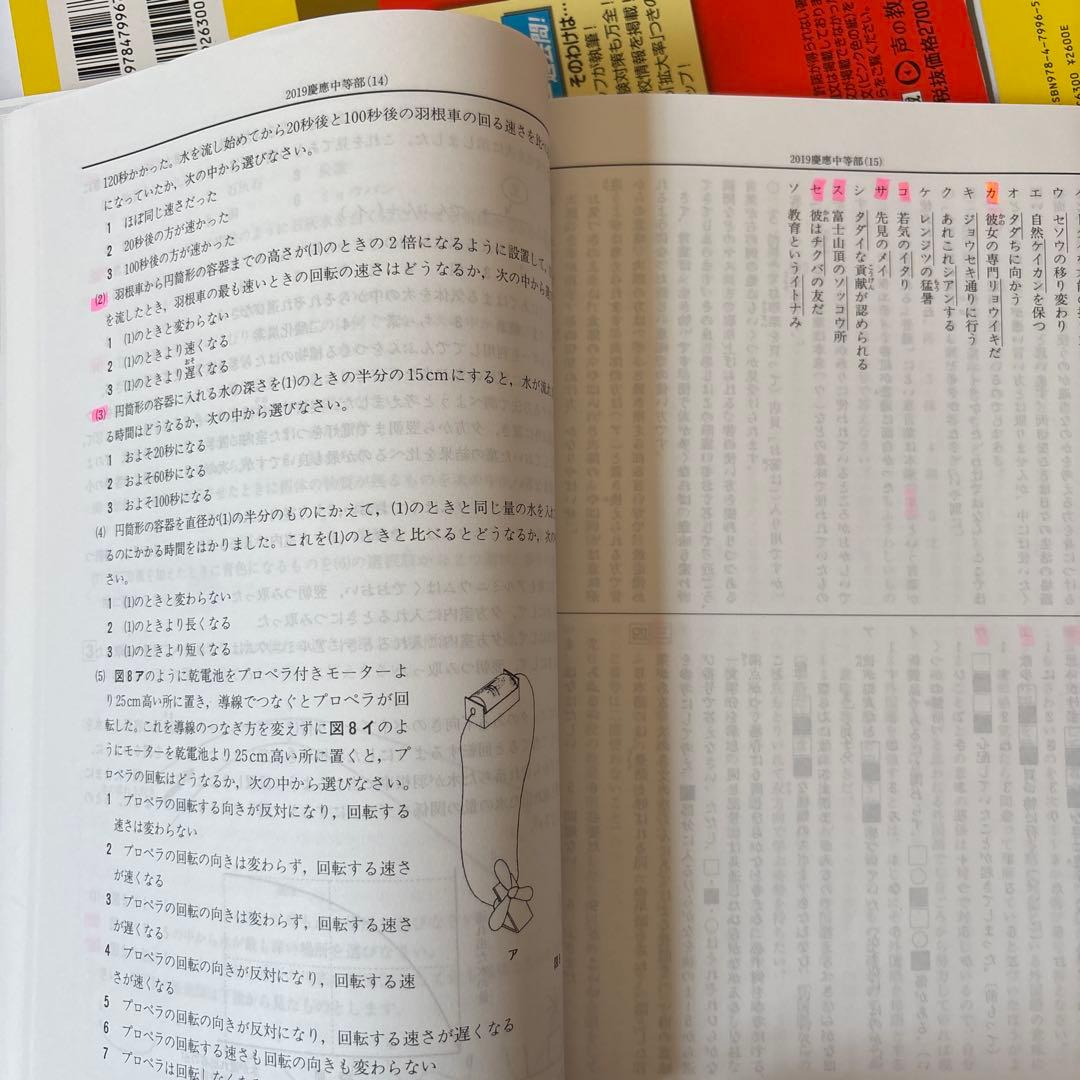 97847996
026300
過去問!
そのわけは…
フが執筆!
険対策も万全!
校情報を掲載!
「拡大率」つきの
ップ!
声の教
税抜価格2700
SBN978-4-7996-5
C6300 ¥2600E
2019慶應中等部(14)
120秒かかった。水を流し始めてから20秒後と100秒後の羽根車の回る速さを比べ
になっていたか，次の中から選びなさい。
1 ほぼ同じ速さだった
2 20秒後の方が速かった
3 100秒後の方が速かった
(2) 羽根車から円筒形の容器までの高さが(1)のときの2倍になるように設置して，
を流したとき，羽根車の最も速いときの回転の速さはどうなるか，次の中から選
1 (1)のときと変わらない
2 (1)のときより速くなる
3 (1)のときより遅くなる
(3) 円筒形の容器に入れる水の深さを(1)のときの半分の15cmにすると，水が流
る時間はどうなるか，次の中から選びなさい。
1 およそ20秒になる
2 およそ60秒になる
3 およそ100秒になる
(4) 円筒形の容器を直径が(1)の半分のものにかえて，(1)のときと同じ量の水を入
るのにかかる時間をはかりました。これを(1)のときと比べるとどうなるか，次の
さい。
1 (1)のときと変わらない
2 (1)のときより長くなる
3 (1)のときより短くなる
(5) 図8アのように乾電池をプロペラ付きモーターよ
り25cm高い所に置き，導線でつなぐとプロペラが回
転した。これを導線のつなぎ方を変えずに図8イのよ
うにモーターを乾電池より25cm高い所に置くと，プ
ロペラの回転はどうなるか，次の中から選びなさい。
1 プロペラの回転する向きが反対になり，回転する
速さは変わらない
2 プロペラの回転の向きは変わらず，回転する速さ
が速くなる
3 プロペラの回転の向きは変わらず，回転する速さ
が遅くなる
4 プロペラの回転の向きが反対になり，回転する速
さが速くなる
5 プロペラの回転の向きが反対になり，回転する速さが遅くなる
6 プロペラの回転する速さも回転の向きも変わらない
7 プロペラは回転しなくなる
ア
2019慶應中等部(15)
ウ セソウの移り変わり
エ 自然ケイカンを保つ
オ タダちに向かう
カ 彼女の専門リョウイキだ
キ ジョウセキ通りに行う
ク あれこれシアンする
ケ レンジツの猛暑
コ 若気のイタり
サ 先見のメイ
シ タダイな貢献が認められる
ス 富士山頂のソッコウ所
セ 彼はチクバの友だ
ソ 教育というイトナみ